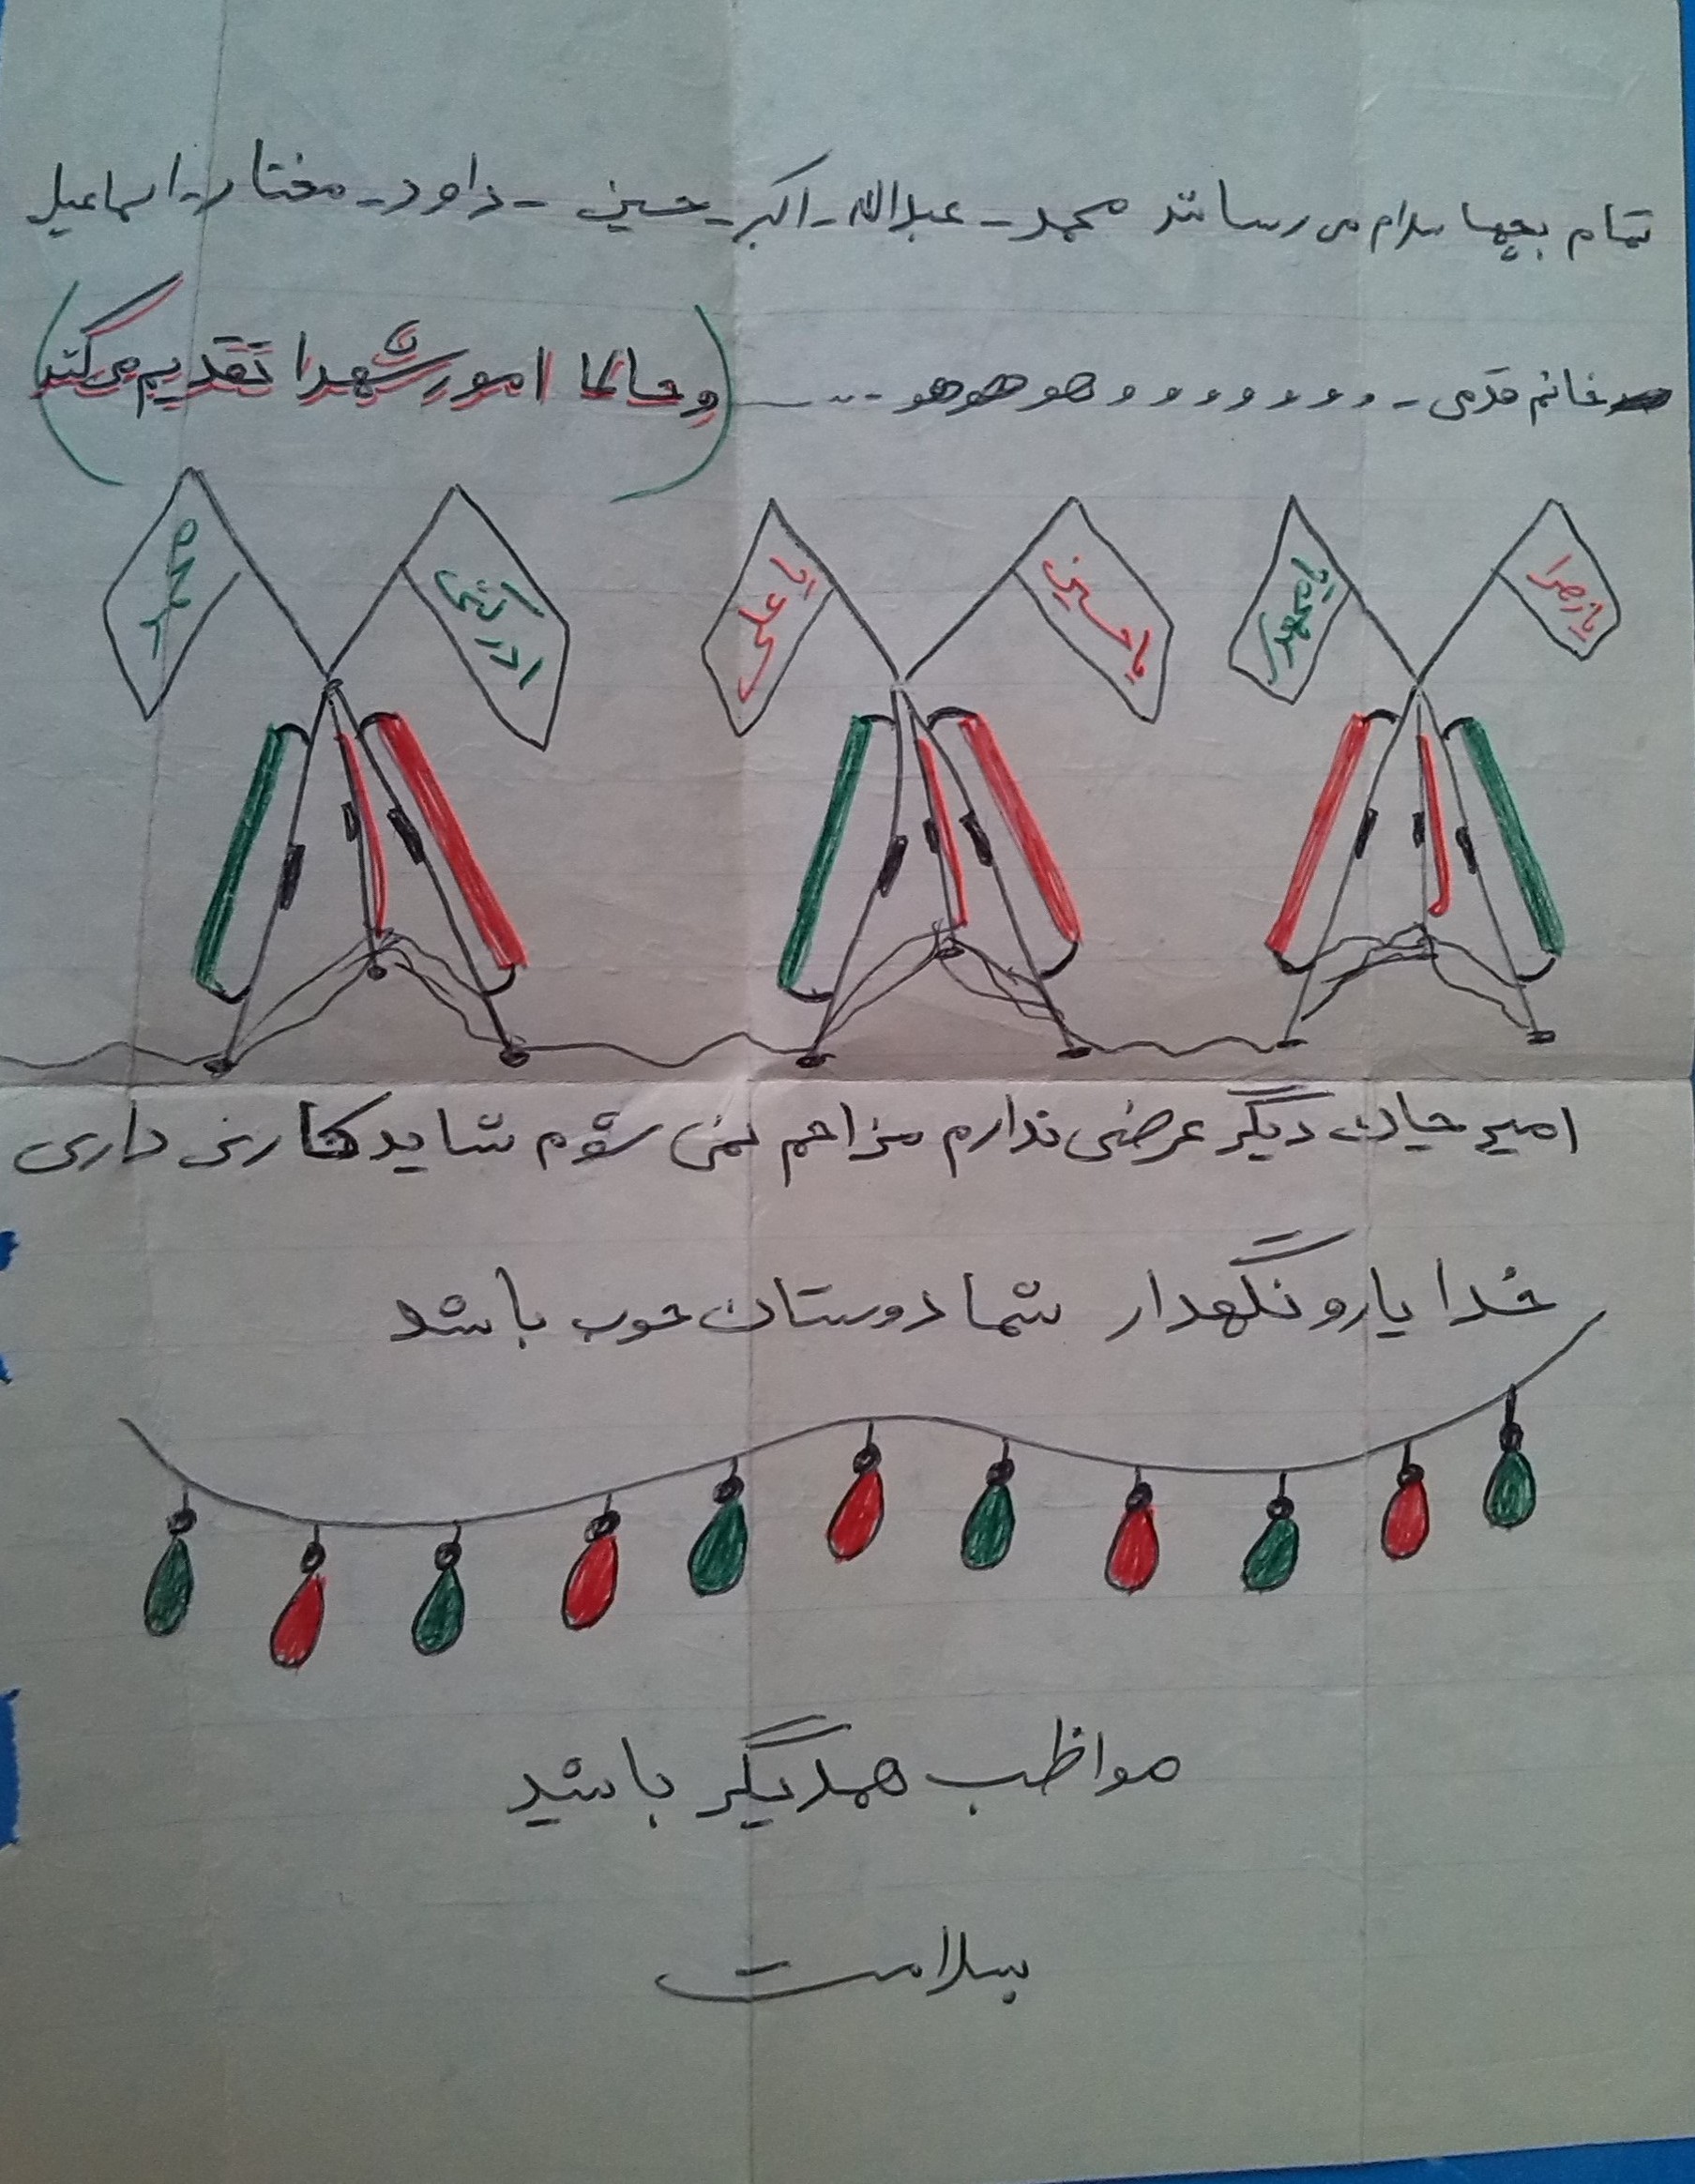 تمام بچها سلام می رسانند محمد - عبدالله - اکبر - حسین - داود - مختار - اسماعیل
خانم قدمی - و و و و و و و هو هو هو ... (و حالا امور شهدا تقدیم می کند)
یا زهرا
یا مهدی
یا حسین
یا علی
محمد
امیر جان دیگر عرضی ندارم مزاحم نمی شوم شاید کاری داری
خدا یار و نگهدار شما دوستان خوب باشد
مواظب همدیگر باشید
بسلامت